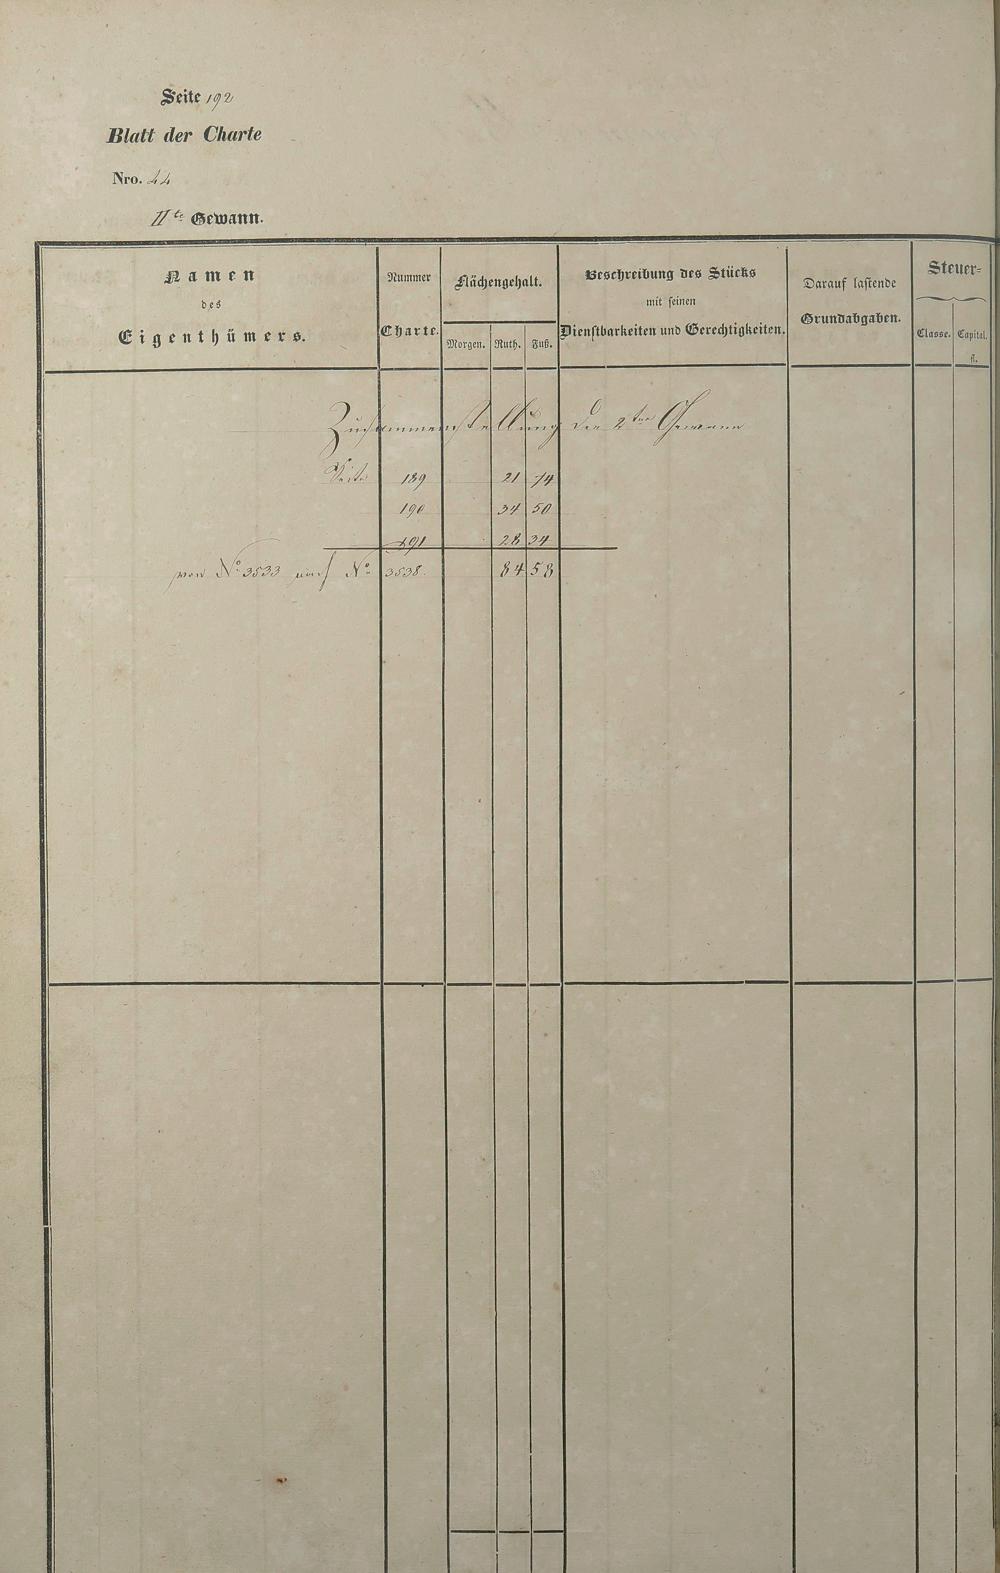 Seite 192
Blatt der Charte
Nro. 44
IIte Gewann.
Namen des Eigenthümers.
Nummer Charte.
Flächengehalt.
Morgen. Ruth. Fuß.
Beschreibung des Stücks mit seinen Dienstbarkeiten und Gerechtigkeiten.
Darauf lastende Grundabgaben.
Steuer-
Classe. Capital. fl.
Zusammenstellung der 2ten Gewann
Seite 189 21 74
190 34 50
191 28 34
von No 3533 nach No 3538. 84 58